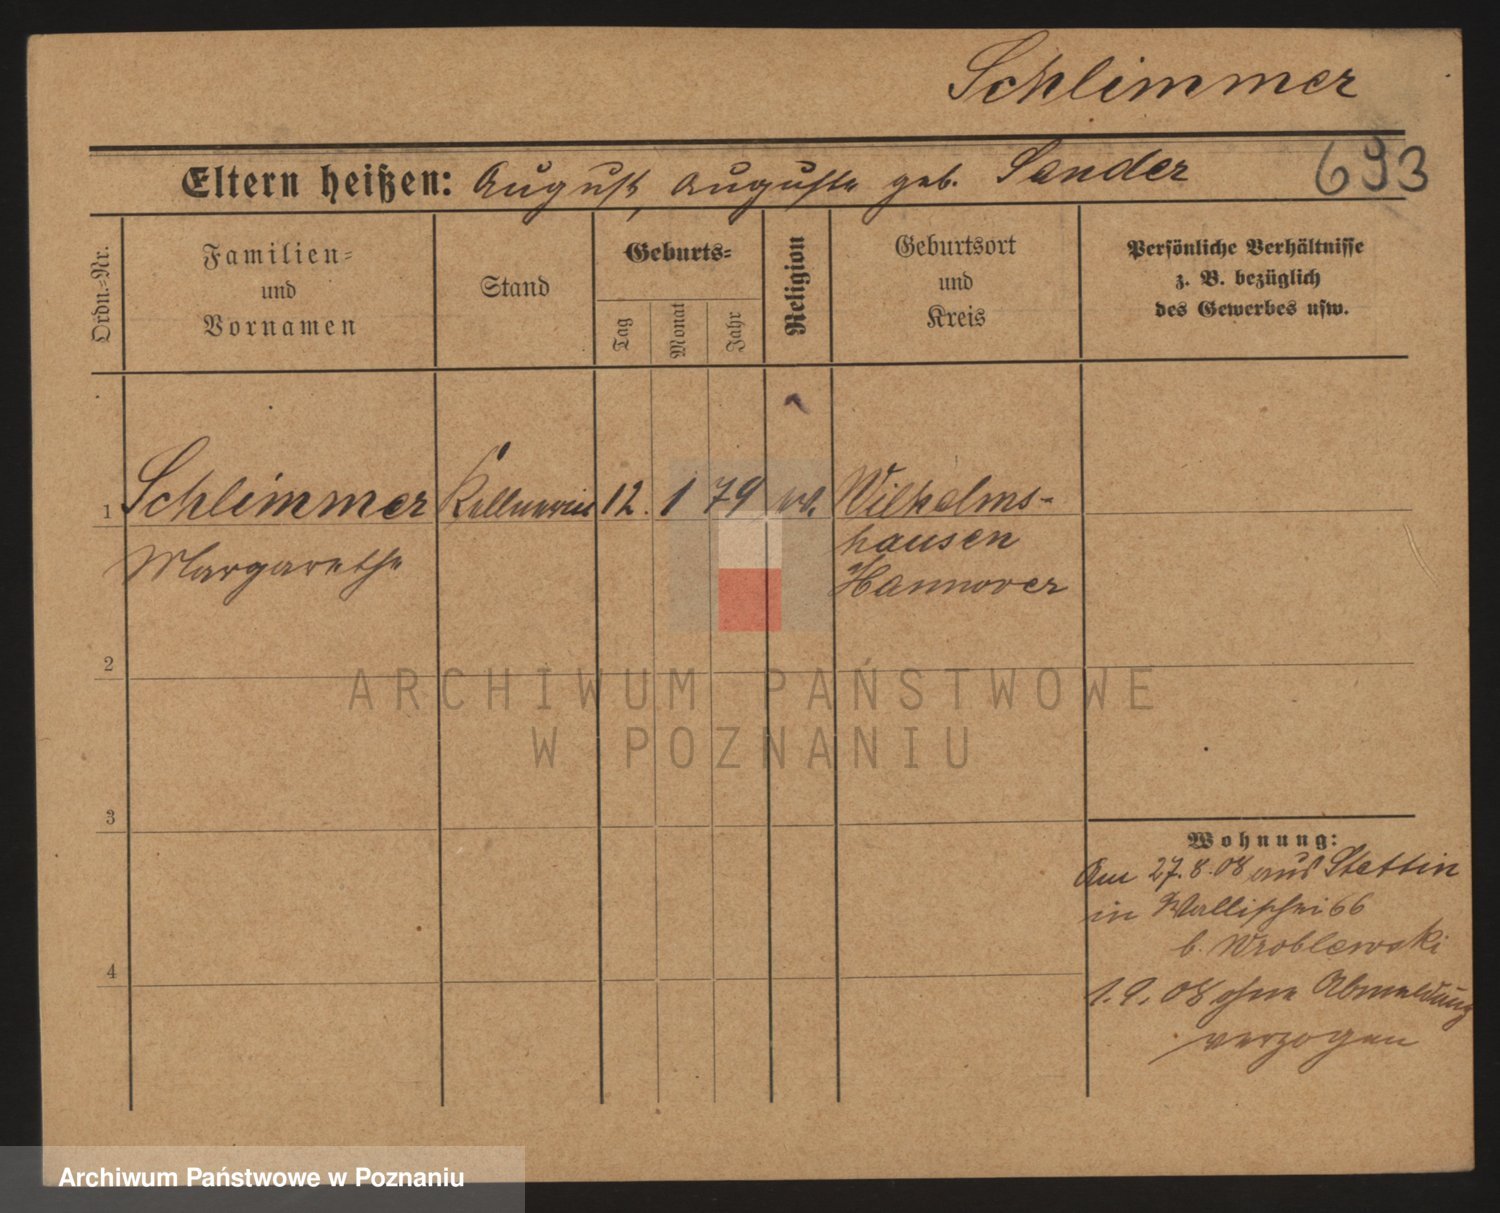 Schlimmer
Eltern heißen: August, Auguste geb. Sander
693
Ordn.-Nr.
Familien-
und
Vornamen
Stand
Geburts-
Tag
Monat
Jahr
Religion
Geburtsort
und
Kreis
Persönliche Verhältnisse
z. B. bezüglich
des Gewerbes usw.
1 Schlimmer Kellnerin 12. 1 79 Wilhelms-
Margarethe hausen
Hannover
2
ARCHIWUM PAŃSTWOWE
W POZNANIU
3
Wohnung:
Am 27.8.08 aus Stettin
in Wallischei 66
b. Wroblewski
4
1.9.08 ohne Abmeldung
verzogen
Archiwum Państwowe w Poznaniu